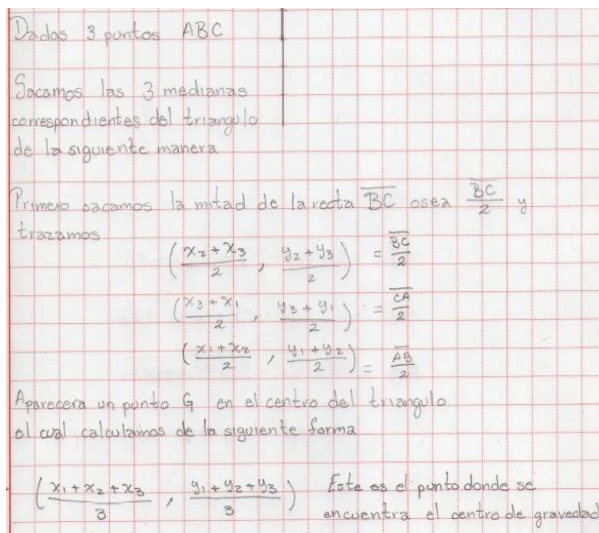 Dados 3 puntos ABC
Sacamos las 3 medianas
correspondientes del triangulo
de la siguiente manera
Primero sacamos la mitad de la recta \overline{BC} osea \frac{\overline{BC}}{2} y
trazamos
(\frac{x_2+x_3}{2}, \frac{y_2+y_3}{2}) = \frac{\overline{BC}}{2}
(\frac{x_3+x_1}{2}, \frac{y_3+y_1}{2}) = \frac{\overline{CA}}{2}
(\frac{x_1+x_2}{2}, \frac{y_1+y_2}{2}) = \frac{\overline{AB}}{2}
Aparecera un punto G en el centro del triangulo
el cual calculamos de la siguiente forma
(\frac{x_1+x_2+x_3}{3}, \frac{y_1+y_2+y_3}{3}) Este es el punto donde se
encuentra el centro de gravedad